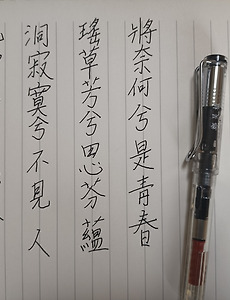 將奈何兮是青春
瑤草芳兮思芬蘊
洞寂寞兮不見人